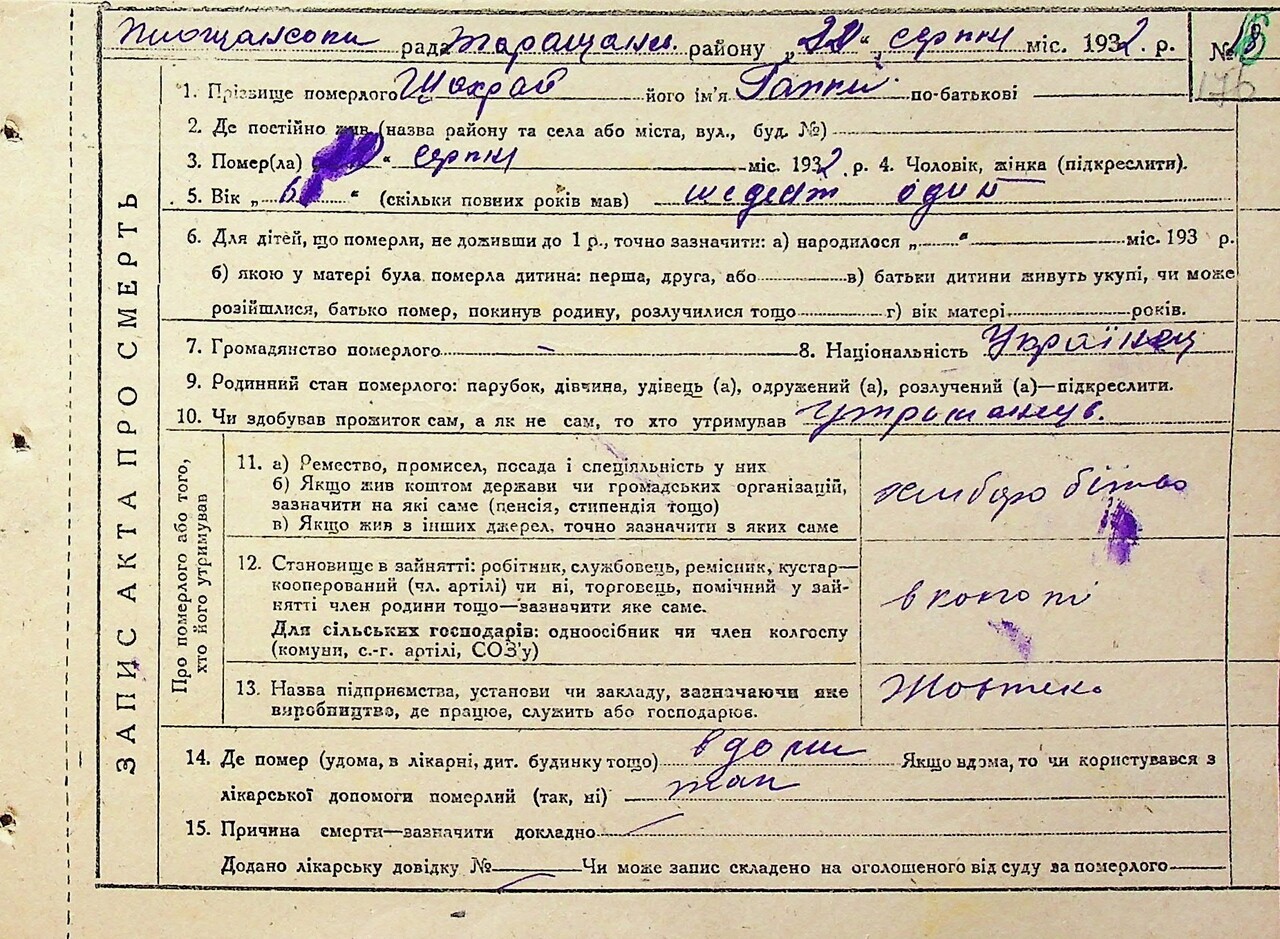 рада Таращанс. району „22“ серпня міс. 1932. р. № 18
176
1. Прізвище померлого Шохрай його ім'я Гапки по-батькові
2. Де постійно жив (назва району та села або міста, вул., буд. №)
3. Помер(ла) “ серпня міс. 1932 р. 4. Чоловік, жінка (підкреслити).
5. Вік „ 61 “ (скільки повних років мав) шедеят один
6. Для дітей, що померли, не доживши до 1 р., точно зазначити: а) народилося „ “ міс. 193 р.
б) якою у матері була померла дитина: перша, друга, або в) батьки дитини живуть укупі, чи може
розійшлися, батько помер, покинув родину, розлучилися тощо г) вік матері років.
7. Громадянство померлого – 8. Національність Українец
9. Родинний стан померлого: парубок, дівчина, удівець (а), одружений (а), розлучений (а)—підкреслити.
10. Чи здобував прожиток сам, а як не сам, то хто утримував
ЗАПИС АКТА ПРО СМЕРТЬ
Про померлого або того,
хто його утримував
11. а) Ремество, промисел, посада і спеціяльність у них
б) Якщо жив коштом держави чи громадських організацій,
зазначити на які саме (пенсія, стипендія тощо)
в) Якщо жив з інших джерел, точно зазначити з яких саме
12. Становище в зайнятті: робітник, службовець, ремісник, кустар—
кооперований (чл. артілі) чи ні, торговець, помічний у зай-
нятті член родини тощо—зазначити яке саме.
Для сільських господарів: одноосібник чи член колгоспу
(комуни, с.-г. артілі, СОЗ'у)
13. Назва підприємства, установи чи закладу, зазначаючи яке
виробництво, де працює, служить або господарює.
14. Де помер (удома, в лікарні, дит. будинку тощо) вдоми Якщо вдома, то чи користувався з
лікарської допомоги померлий (так, ні) так
15. Причина смерти—зазначити докладно
Додано лікарську довідку № Чи може запис складено на оголошеного від суду за померлого